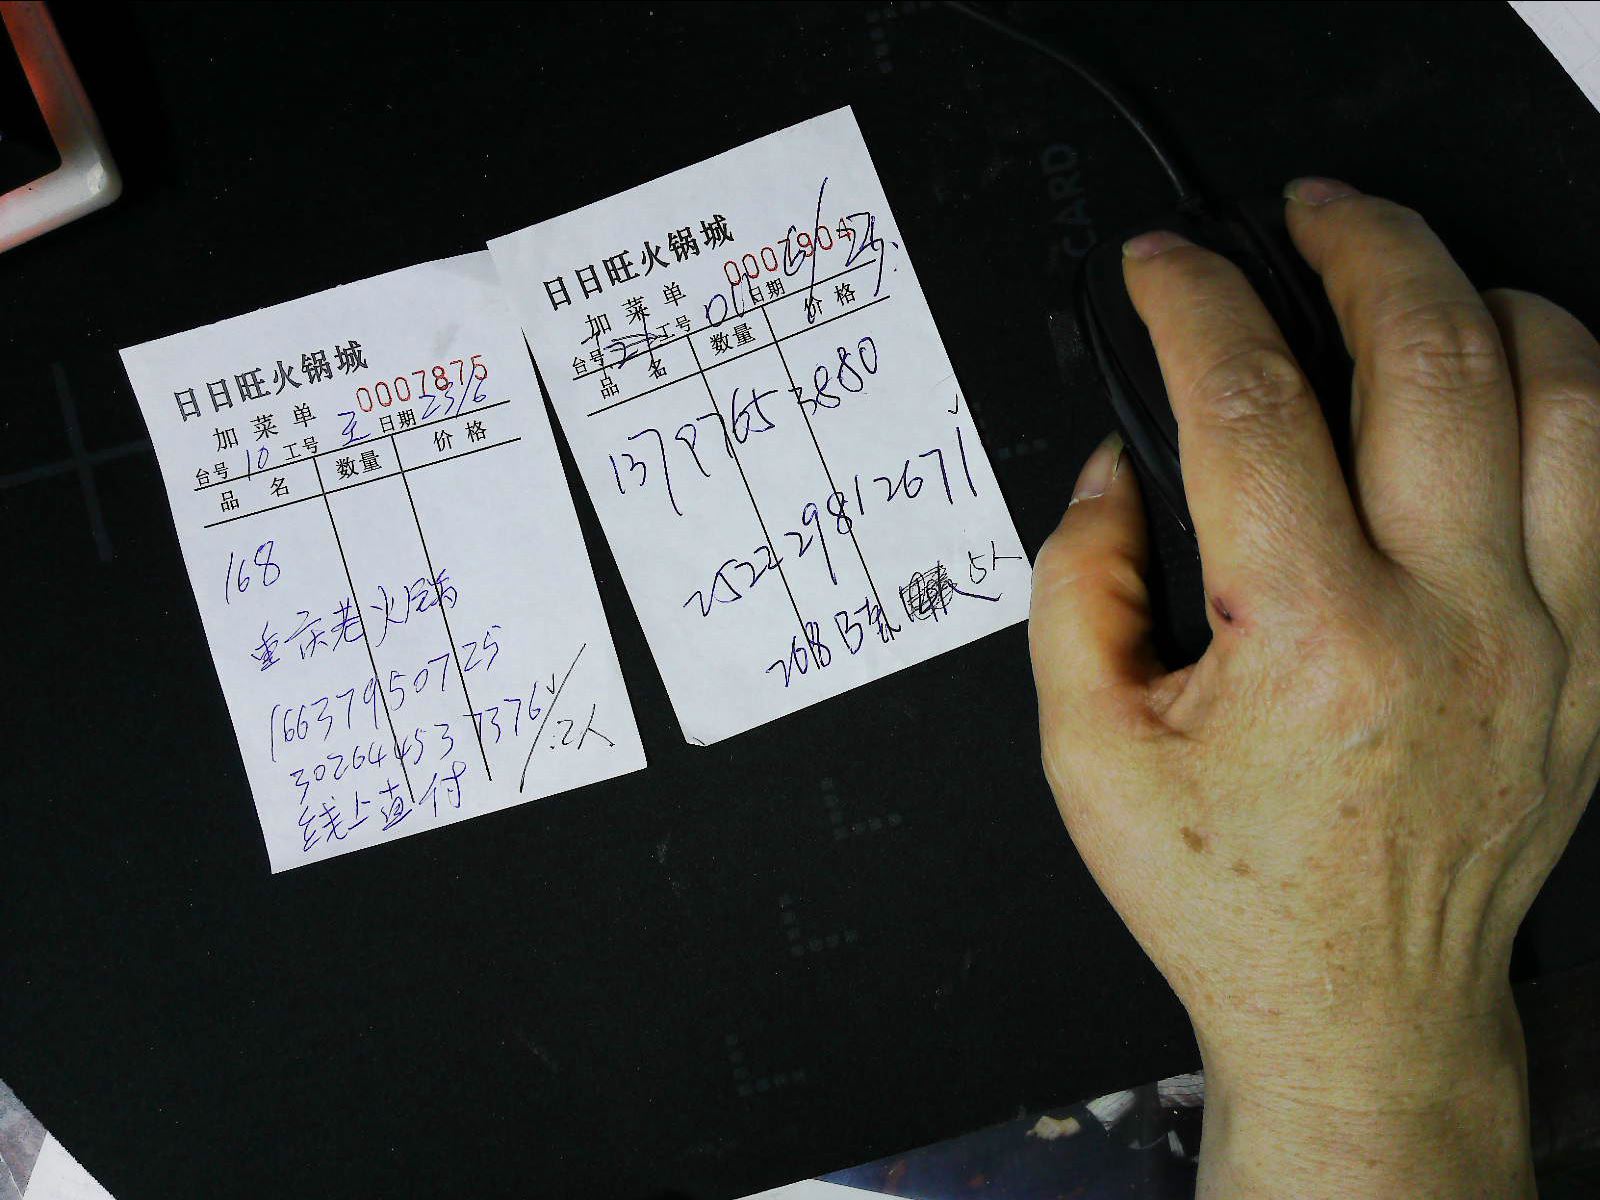 日日旺火锅城
0007875
加菜单
台号 10 工号 王 日期 23/6
品名 数量 价格
168
重庆老火锅
16637950725
302644537376
线上直付 2人
日日旺火锅城
加菜单
台号 工号 01 日期
品名 数量 价格
13797653880
252229812671
268 5人
CARD